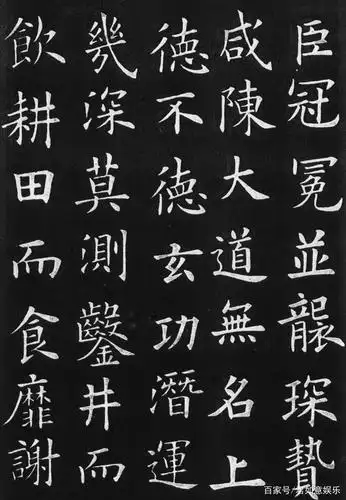 臣冠冕並襲琛贄
咸陳大道無名上
德不德玄功潛運
幾深莫測鑿井而
飲耕田而食靡謝
百家号/如意娱乐